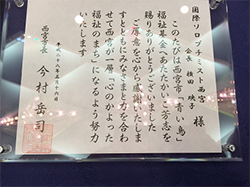 国際ソロプチミスト西宮
会長 横田 瑛子 様
このたびは西宮市「青い鳥」
福祉基金へあたたかいご芳志を
賜りありがとうございました
ご厚意を心から感謝いたしま
すとともにみなさまと力を合わ
せて西宮が一層「心のかよった
福祉のまち」になるよう努力
いたします
平成二十八年五月十六日
西宮市長
今村岳司